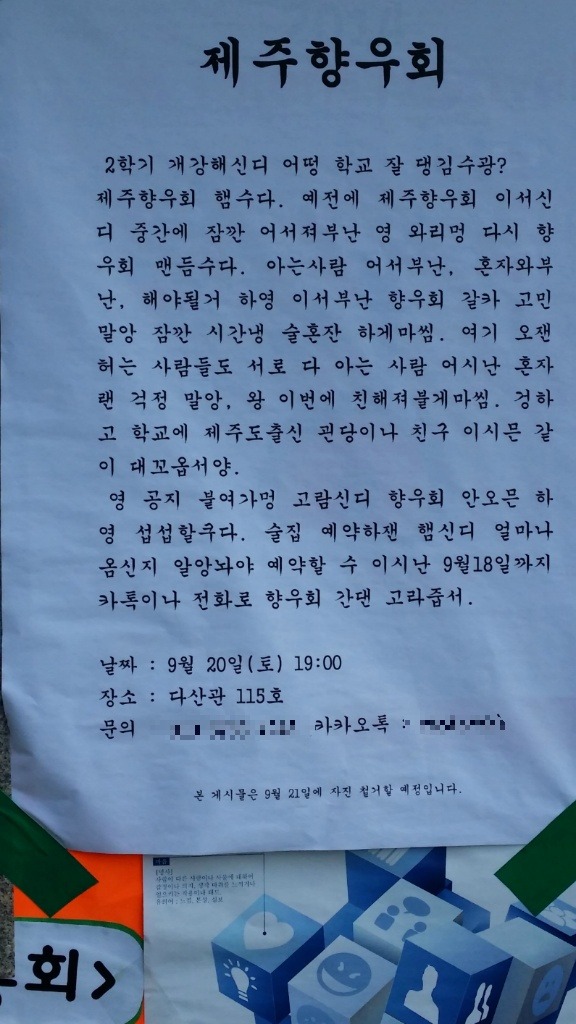 제주향우회
2학기 개강해신디 어떵 학교 잘 댕김수광?
제주향우회 햄수다. 예전에 제주향우회 이서신
디 중간에 잠깐 어서져부난 영 와리멍 다시 향
우회 맨듬수다. 아는사람 어서부난, 혼자와부
난, 해야될거 하영 이서부난 향우회 갈카 고민
말앙 잠깐 시간냉 술혼잔 하게마씸. 여기 오잰
허는 사람들도 서로 다 아는 사람 어시난 혼자
랜 걱정 말앙, 왕 이번에 친해져불게마씸. 겅하
고 학교에 제주도출신 괸당이나 친구 이시믄 같
이 대꼬옵서양.
영 공지 붙여가멍 고람신디 향우회 안오믄 하
영 섭섭할쿠다. 술집 예약하잰 햄신디 얼마나
옴신지 알앙놔야 예약할 수 이시난 9월18일까지
카톡이나 전화로 향우회 간댄 고라줍서.
날짜 : 9월 20일(토) 19:00
장소 : 다산관 115호
문의 카카오톡 :
본 게시물은 9월 21일에 자진 철거할 예정입니다.
[명사]
회>